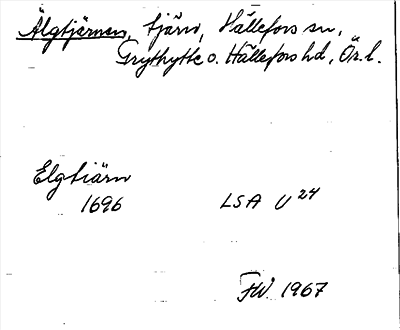 Älgtjärnen, tjärn, Hällefors sn,
Grythytte o. Hällefors hd, Ör. l.
Elgtiärn
1696 LSA U 24
FW. 1967